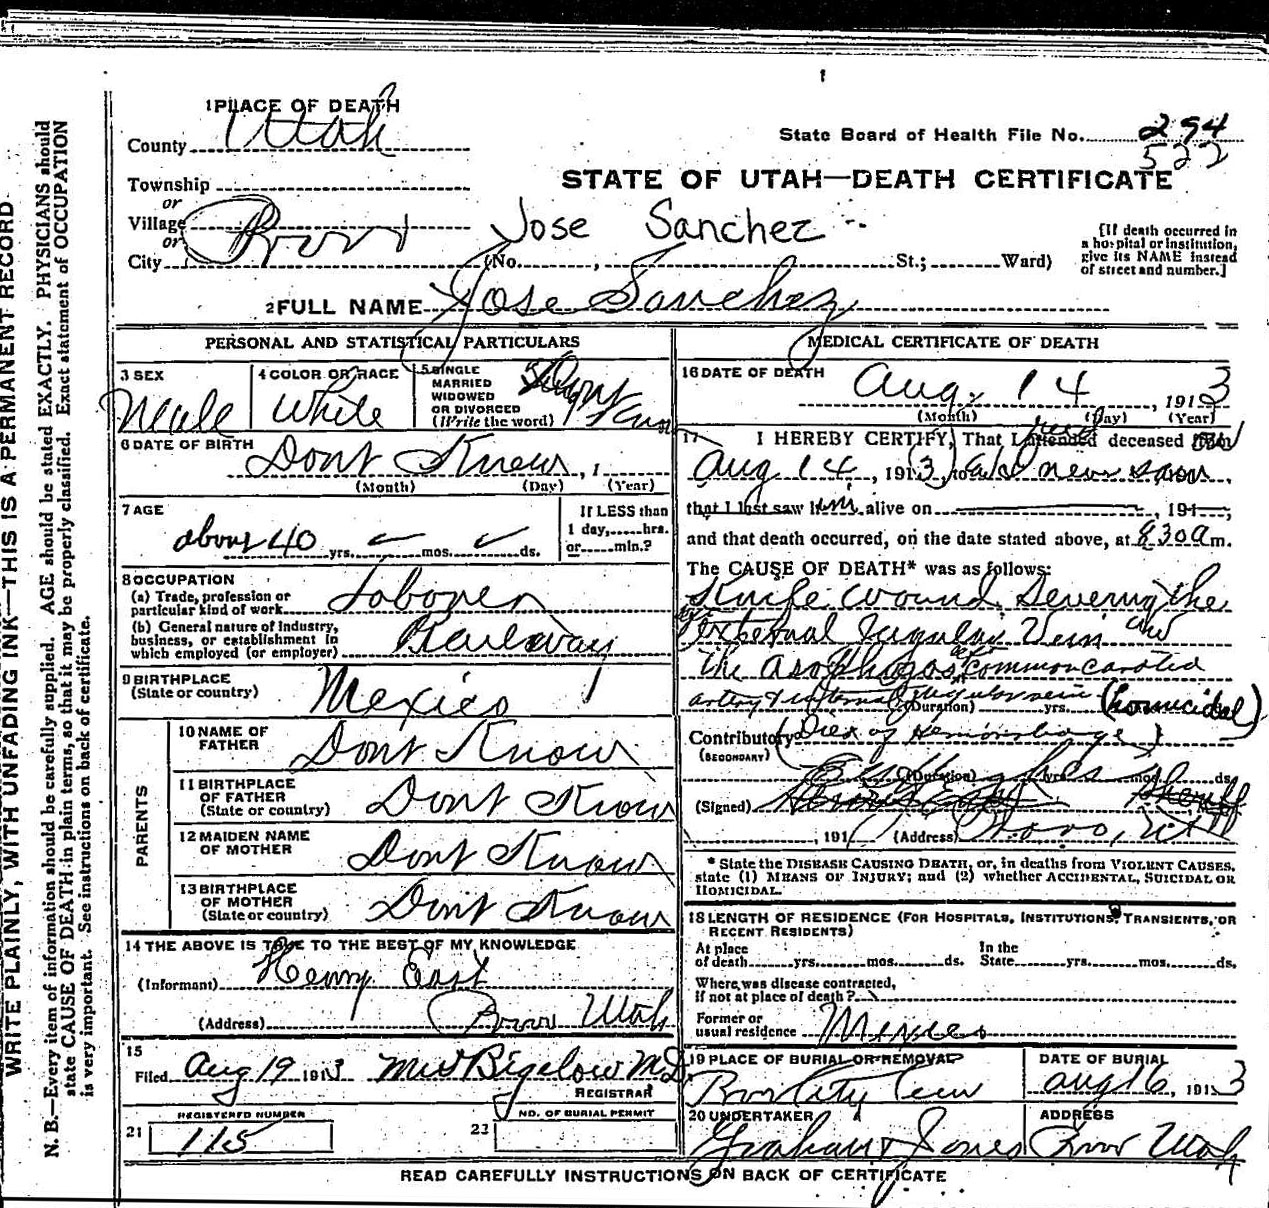 1 PLACE OF DEATH
County Utah
State Board of Health File No. 294
522
Township
or
Village
or
City Provo
STATE OF UTAH—DEATH CERTIFICATE
Jose Sanchez
(No. , St.; Ward)
[If death occurred in a hospital or institution, give its NAME instead of street and number.]
2 FULL NAME Jose Sanchez
PERSONAL AND STATISTICAL PARTICULARS
3 SEX Male
4 COLOR OR RACE White
5 SINGLE MARRIED WIDOWED OR DIVORCED (Write the word) Dont Know
6 DATE OF BIRTH Dont Know, 1
(Month) (Day) (Year)
7 AGE about 40 yrs. mos. ds.
If LESS than 1 day, hrs. or min.?
8 OCCUPATION
(a) Trade, profession or particular kind of work Laborer
(b) General nature of industry, business, or establishment in which employed (or employer) Railway
9 BIRTHPLACE (State or country) Mexico
PARENTS
10 NAME OF FATHER Dont Know
11 BIRTHPLACE OF FATHER (State or country) Dont Know
12 MAIDEN NAME OF MOTHER Dont Know
13 BIRTHPLACE OF MOTHER (State or country) Dont Know
14 THE ABOVE IS TRUE TO THE BEST OF MY KNOWLEDGE
(Informant) Henry East
(Address) Provo Utah
15
Filed Aug 19 1913 Bigelow M.D.
REGISTRAR
REGISTERED NUMBER
21 115
NO. OF BURIAL PERMIT
23
MEDICAL CERTIFICATE OF DEATH
16 DATE OF DEATH Aug. 14, 1913
(Month) (Day) (Year)
17 I HEREBY CERTIFY, That I attended deceased from
Aug 14, 1913, to never saw
that I last saw him alive on , 191 ;
and that death occurred, on the date stated above, at 830 a m.
The CAUSE OF DEATH* was as follows:
Knife wound Severing the
External Jugular Vein and
the asophogos common carotid
artery & internal jugular vein (homicidal)
(Duration) yrs.
Contributory Died of Hemorrhage
(SECONDARY)
(Duration) yrs. mos. ds.
(Signed) Sheriff
, 191 (Address) Provo, Ut
* State the DISEASE CAUSING DEATH, or, in deaths from VIOLENT CAUSES, state (1) MEANS OF INJURY; and (2) whether ACCIDENTAL, SUICIDAL OR HOMICIDAL.
18 LENGTH OF RESIDENCE (FOR HOSPITALS, INSTITUTIONS, TRANSIENTS, OR RECENT RESIDENTS)
At place of death yrs. mos. ds. In the State yrs. mos. ds.
Where was disease contracted, if not at place of death?
Former or usual residence Mexico
19 PLACE OF BURIAL OR REMOVAL Provo City Cem
DATE OF BURIAL Aug 16, 1913
20 UNDERTAKER Graham & Jones
ADDRESS Provo Utah
READ CAREFULLY INSTRUCTIONS ON BACK OF CERTIFICATE
WRITE PLAINLY, WITH UNFADING INK—THIS IS A PERMANENT RECORD
N. B.—Every item of information should be carefully supplied. AGE should be stated EXACTLY. PHYSICIANS should
state CAUSE OF DEATH in plain terms, so that it may be properly classified. Exact statement of OCCUPATION
is very important. See instructions on back of certificate.